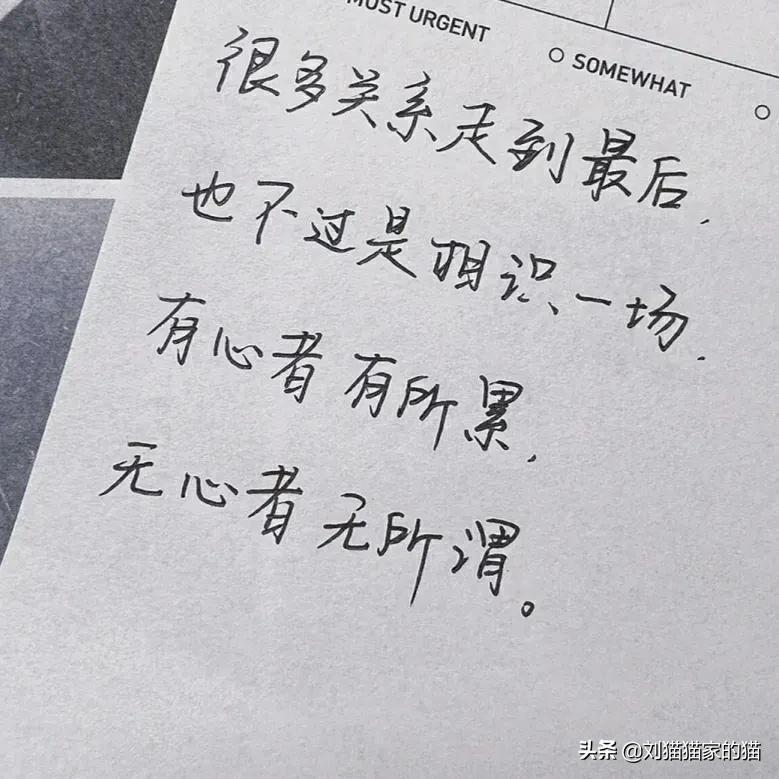 MOST URGENT
SOMEWHAT
很多关系走到最后,
也不过是相识一场.
有心者有所累,
无心者无所谓。
头条 @刘猫猫家的猫